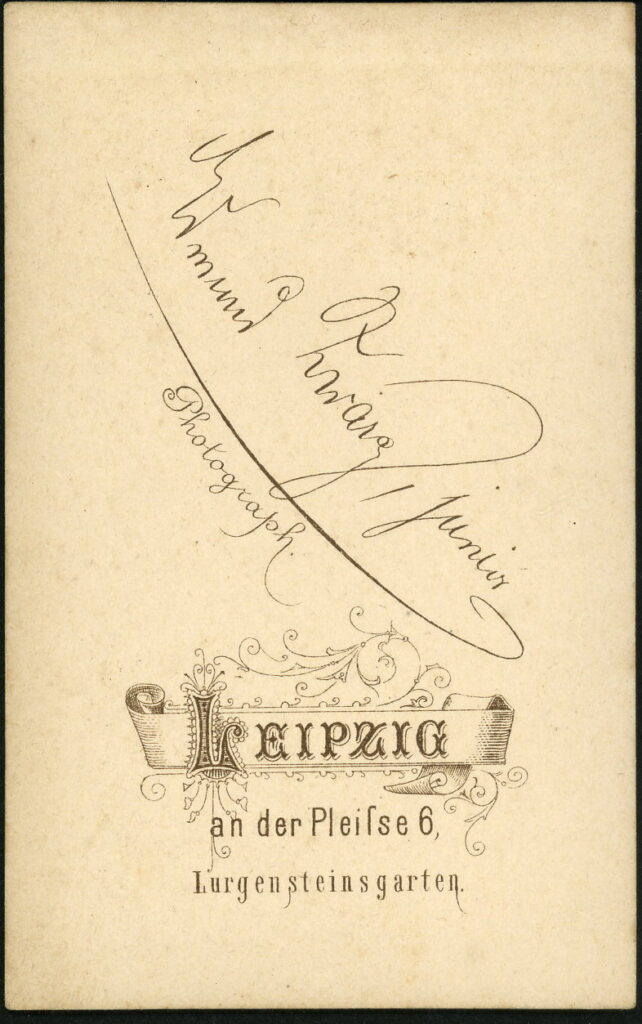 Edmund
, junior
Photograph.
LEIPZIG
an der Pleiſse 6,
Lurgensteinsgarten.